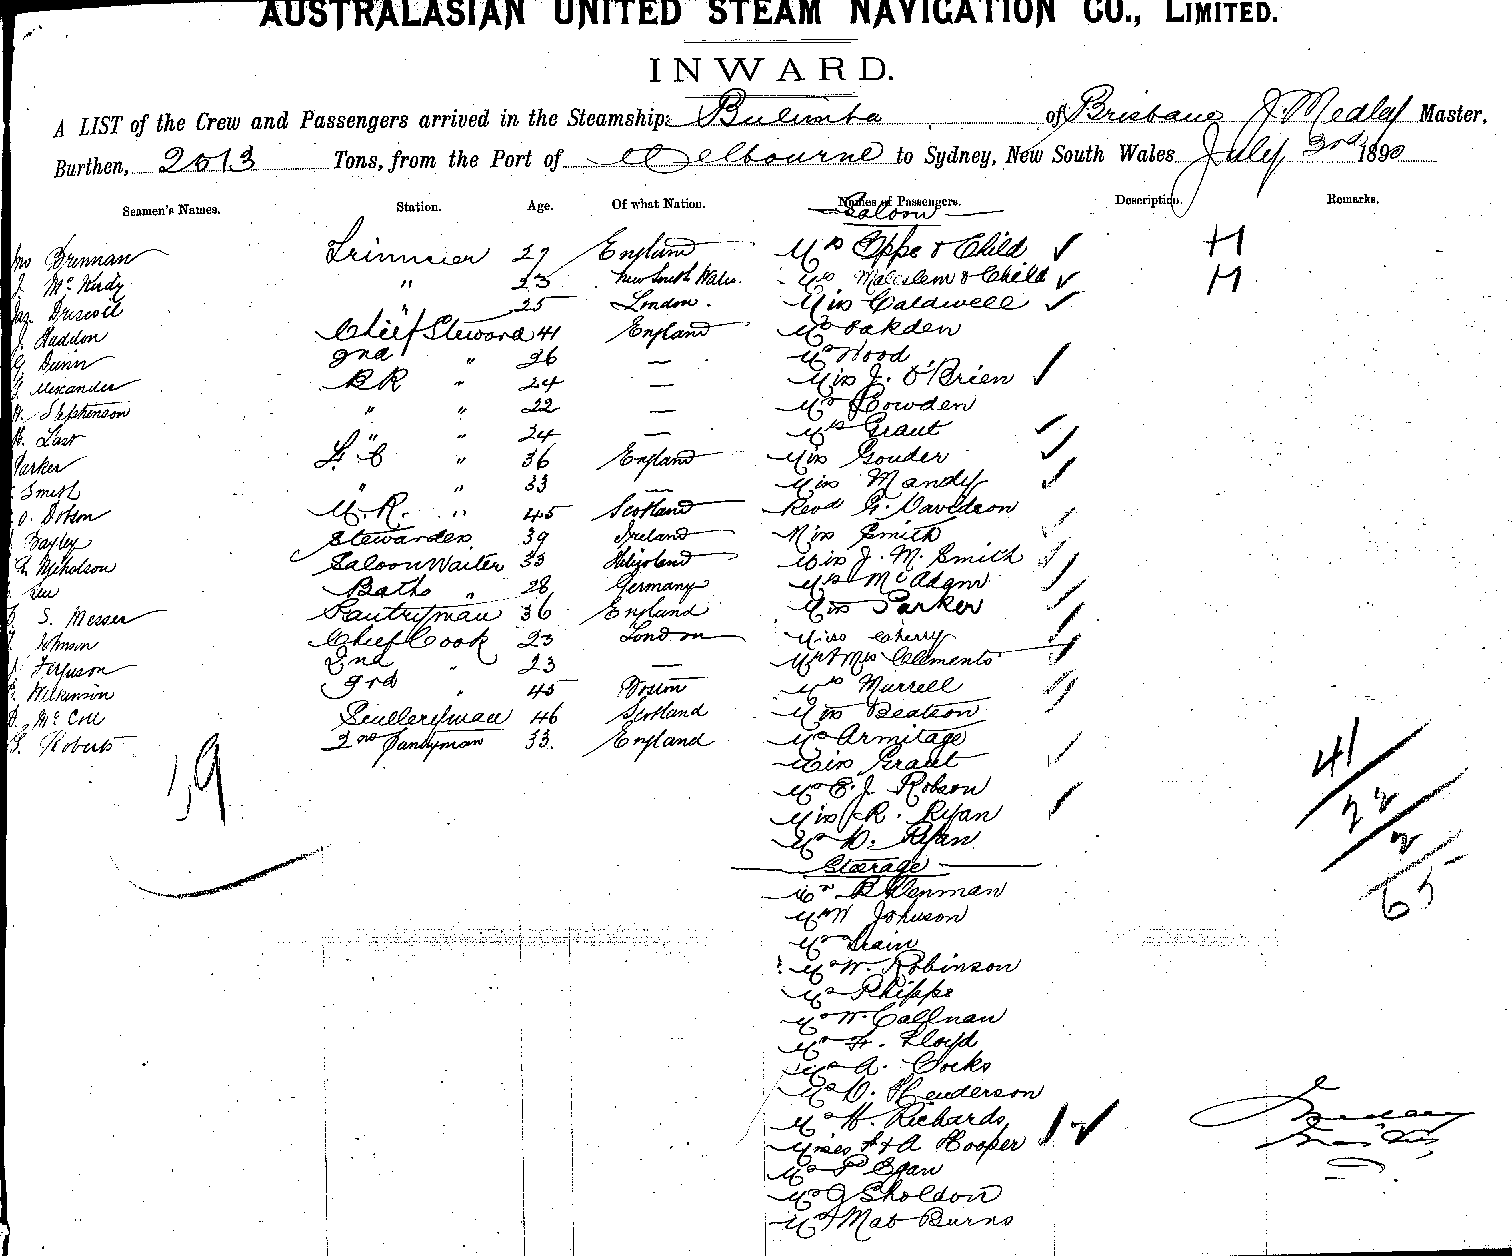 AUSTRALASIAN UNITED STEAM NAVIGATION CO., LIMITED.
INWARD.
A LIST of the Crew and Passengers arrived in the Steamship: Bulimba of Brisbane J. Medley Master,
Burthen, 2513 Tons, from the Port of Melbourne to Sydney, New South Wales July 3rd 1890
Seamen's Names. Station. Age. Of what Nation. Names of Passengers. Description. Remarks.
Saloon
Brennan Trimmer 27 England Mrs Oppe & Child H
" 23 New South Wales. Mrs & Child H
Driscoll " 25 London. Miss Caldwell
J. Haddon Chief Steward 41 England Mr Oakden
G Dunn 2nd " 26 — Mr Wood
Alexander BR " 24 — Miss J. O'Brien
Stephenson " " 22 — Mr Cowden
Last " " 24 — Mrs Grant
Parker " 36 England Miss Gouder
Smith " " 33 — Miss Mandy
Dobson " 45 Scotland Revd G. Davidson
Bayley Stewardess 39 Ireland Miss Smith
Nicholson Saloon Waiter 33 Heligoland Miss J. M. Smith
Baths " 28 Germany Mrs McAdam
S. Messer Pantryman 36 England Miss Parker
Johnson Chief Cook 23 London Miss Cherry
Ferguson 2nd " 23 — Mr & Mrs Clements
Wilkinson 3rd " 45 Boston Mrs Murrell
McColl Sculleryman 46 Scotland Miss Beatson
Roberts 2nd Pantryman 33. England Mr Armitage
19 Miss Grant
Mr E. J. Robson
Miss R. Ryan
Mr D. Ryan
41
22
2
65
Steerage
Mr B Denman
Mr W Johnson
Mr Train
Mr W. Robinson
Mr Phipps
Mr W. Callnan
Mr H. Lloyd
Mr A. Cocks
Mr D. Henderson
Mr H. Richards
Misses & A Hooper
Mr P Egan
Mr J Sholdon
Mr Mat Burns